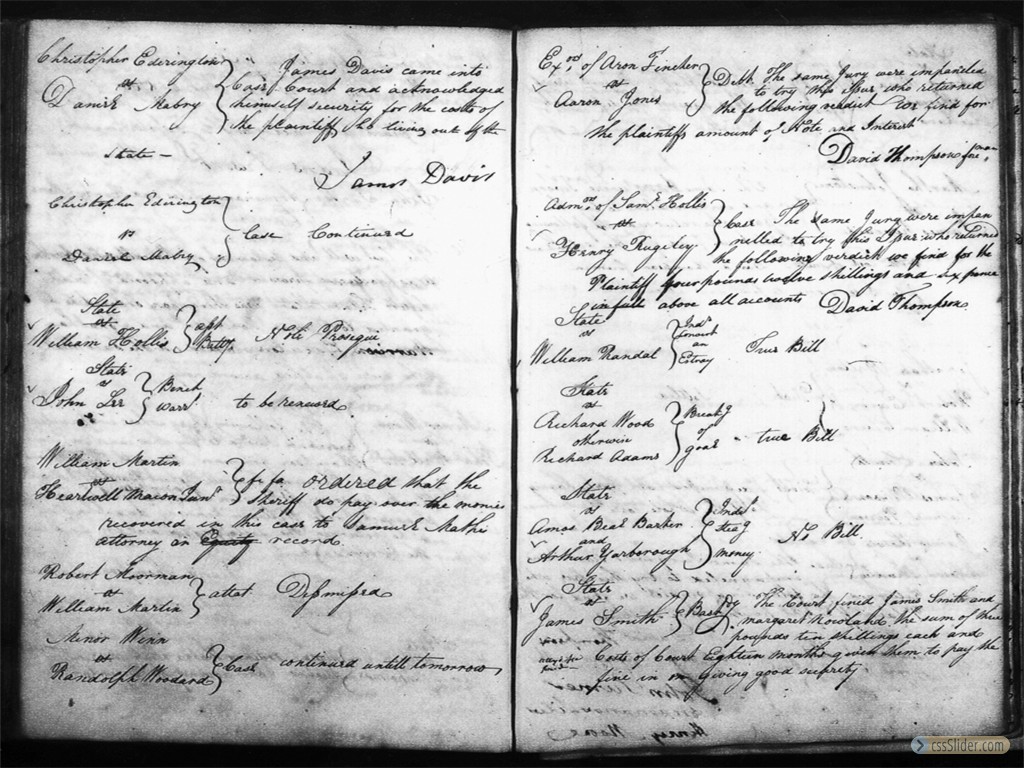 Christopher Edrington
vs
Daniel Mabry
Case James Davis came into
Court and acknowledged
himself security for the costs of
the plaintiff he living out of the
state —
James Davis
Christopher Edrington
vs
Daniel Mabry
Case Continued
State
vs
William Hollis
Nole Prosequi
State
vs
John Lee
Bench
Warrt
to be renewed
William Martin
vs
Heartwell Macon
fi fa ordered that the
Sheriff do pay over the monies
recovered in this case to Samuel Mathi
attorney on Equity record
Robert Moorman
vs
William Martin
attat Dismissed
Minor Winn
vs
Randolph Woodard
Case continued untill tomorrow
Exors of Aron Fincher
vs
Aaron Jones
Debt The same Jury were impaneled
to try this Ipue who returned
the following verdict We find for
the plaintiffs amount of Note and Interest
David Thompson foreman
Admors of Saml Hollis
vs
Henry Rugeley
Case The same Jury were impan
nelled to try this Ipue who returned
the following verdict we find for the
Plaintiff four pounds twelve shillings and six pence
in full above all accounts David Thompson
State
vs
William Randal
Indt
an
Estray
True Bill
State
vs
Richard Wood
otherwise
Richard Adams
Breakg
of
goal
true Bill
State
vs
Amos Beal Barker
and
Arthur Yarborough
Indt
steag
money
No Bill
State
vs
James Smith
Basty
The Court fined James Smith and
margaret Rowland the sum of three
pounds ten shillings each and
Costs of Court Eighteen months given them to pay the
fine in on Giving good security
cssSlider.com